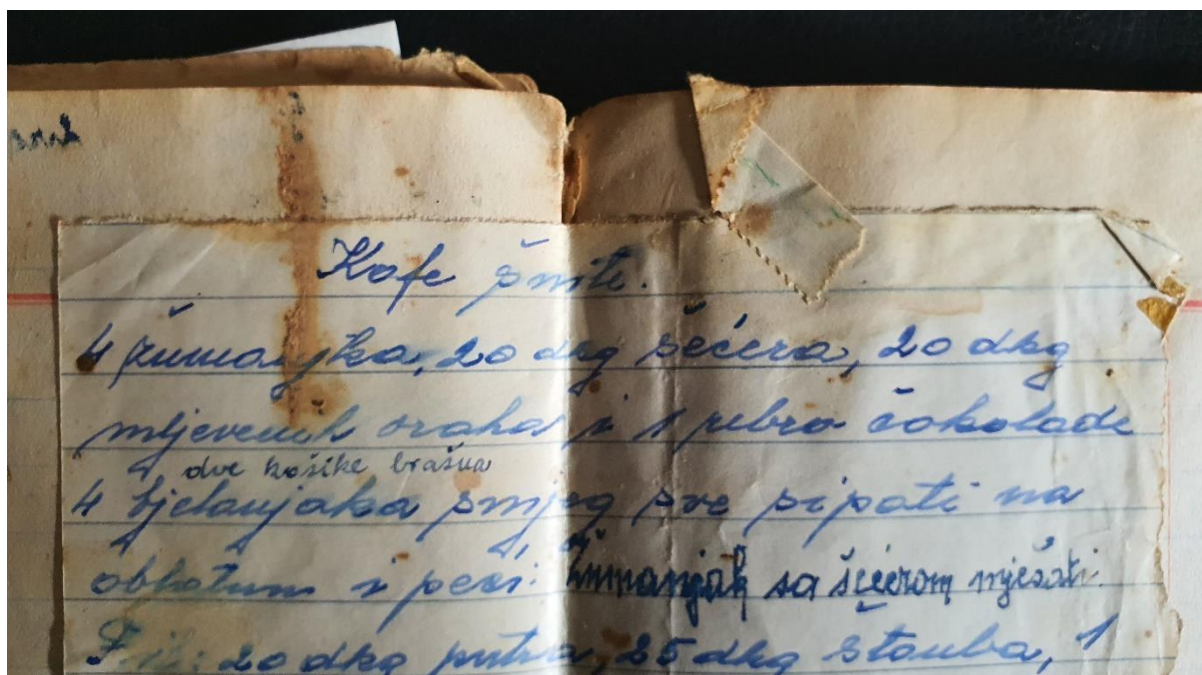 Kafe šnite.
4 žumanjka, 20 dkg šećera, 20 dkg
mljevenih oraha i 1 rebro čokolade
dve kašike brašna
4 bjelanjaka snjeg sve sipati na
oblatum i peci. Žumanjak sa šećerom mješati.
Fil: 20 dkg putra, 25 dkg štauba, 1